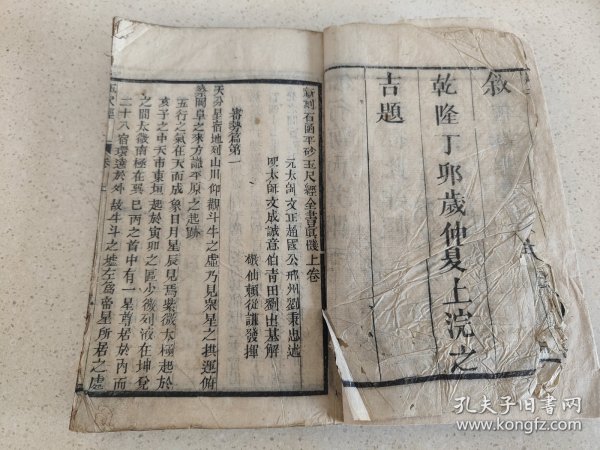 敘
乾隆丁卯歲仲夏上浣之
吉題
新刻石函平砂玉尺經全書真機上卷
元太師文正趙國公邢州劉秉忠述
明太師文成誠意伯青田劉出基解
機仙賴從謙發揮
審勢篇第一
天分星宿地列山川仰觀斗牛之虛乃見眾星之拱運俯
察岡阜之來方識平原之起跡
五行之氣在天而成象日月星辰見焉紫微太極起於
亥子之中天市東垣起於寅卯之區少微列液在坤兌
之間太微南極在巽巳丙之首中有一星尊居於內而
二十八宿環遶於外故牛斗之墟左為帝星所居之處
孔夫子旧书网
www.kongfz.com